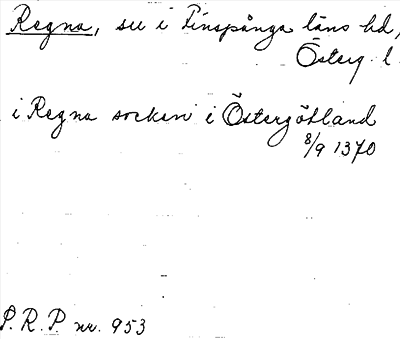 Regna, sn i Finspånga läns hd,
Österg. l.
i Regna socken i Östergötland
8/9 1370
P. R. P. nr. 953